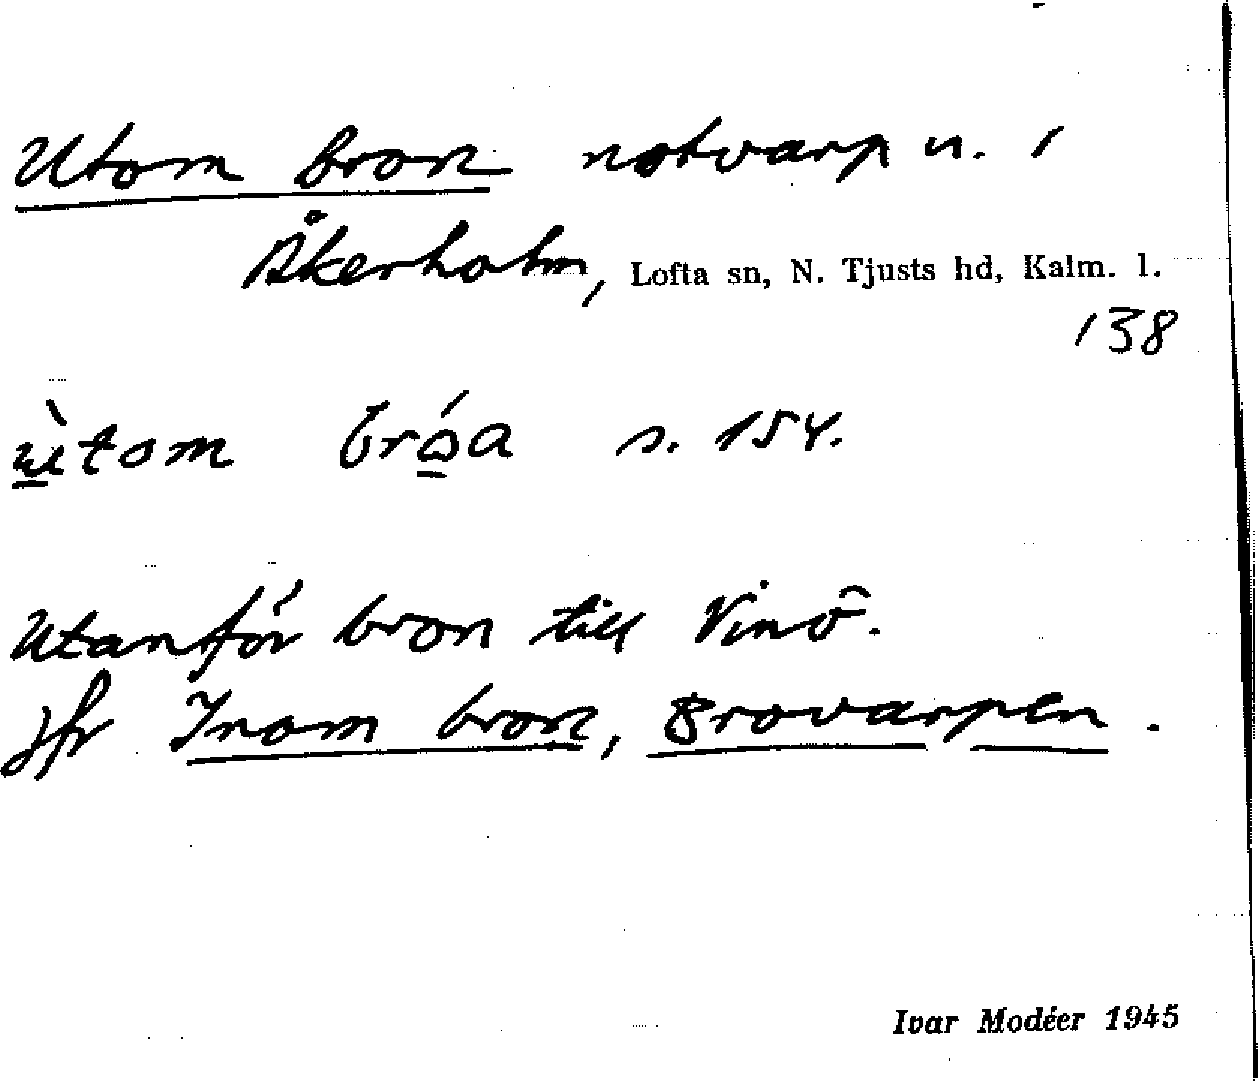 Utom bron notvarp n. i
Åkerholm, Lofta sn, N. Tjusts hd, Kalm. l.
138
ùtom bróa s. 154.
Utanför bron till Vinö.
jfr Inom bron, Brovarpen.
Ivar Modéer 1945